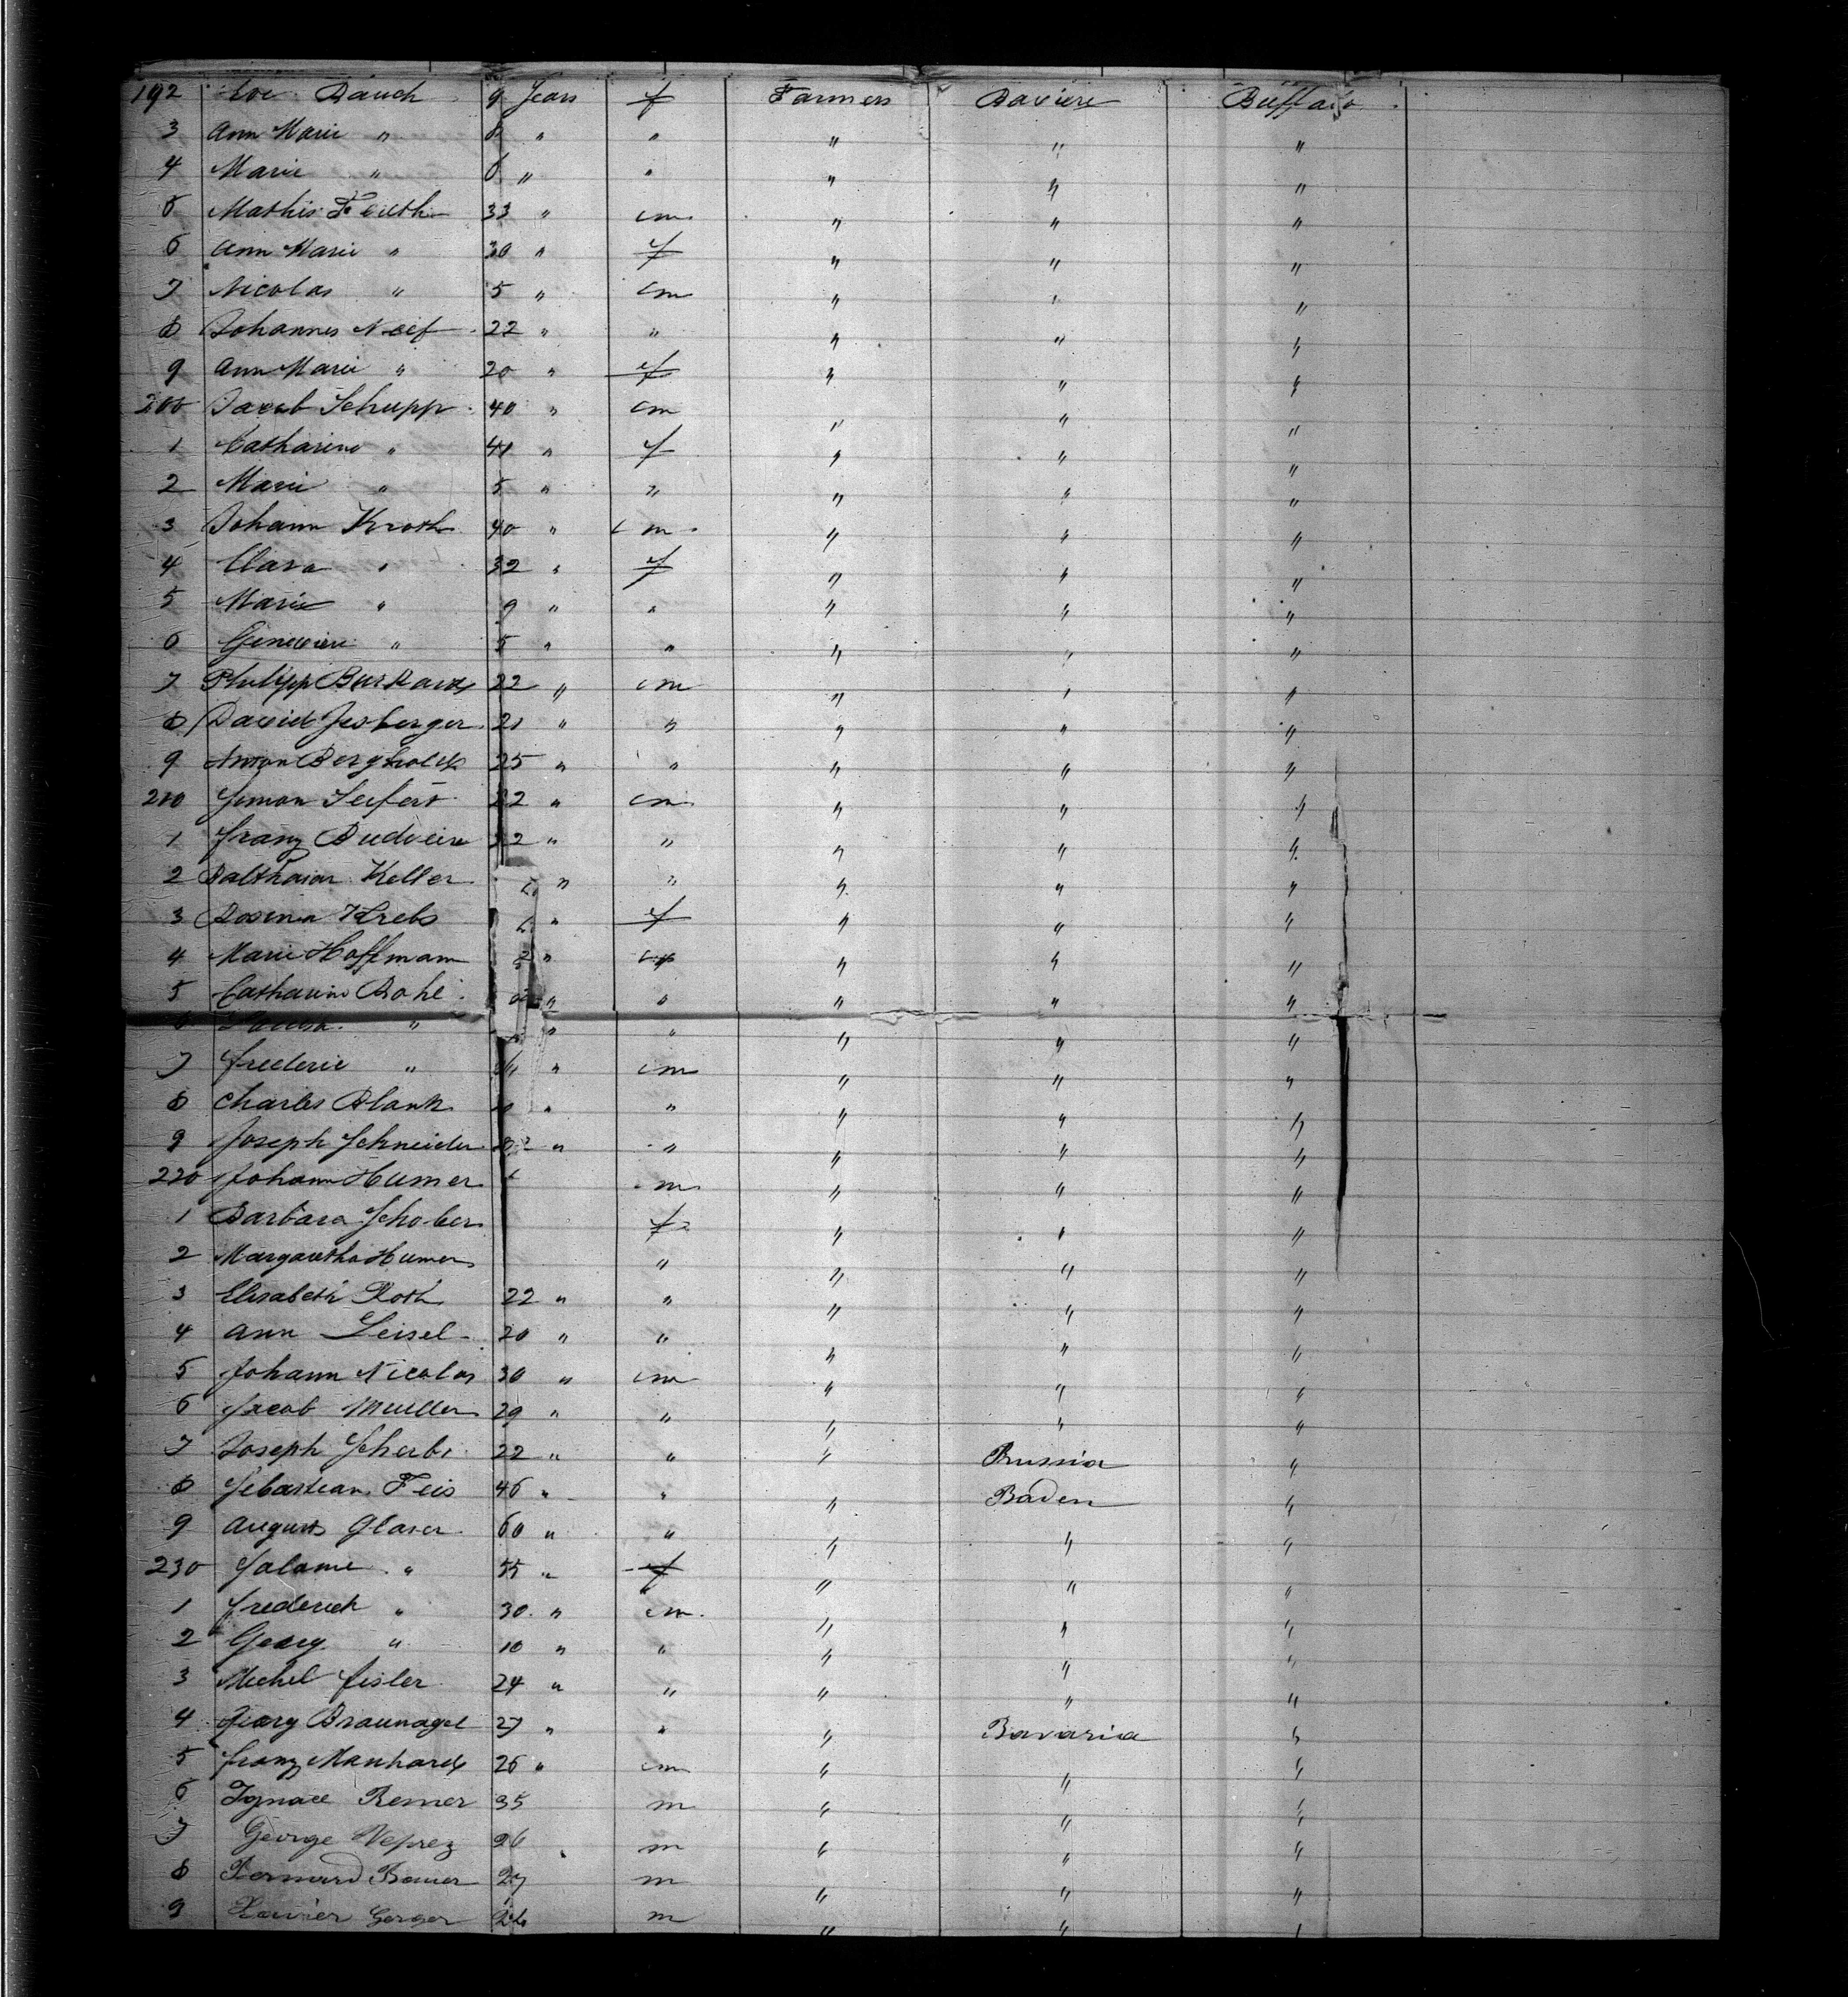 192 Eve Bauch 9 Years f Farmers Baviere Buffalo
3 Ann Marie " 8 " " " " "
4 Marie " 6 " " " " "
5 Mathis Feuth 33 " m " " "
6 Ann Marie " 30 " f " " "
7 Nicolas " 5 " m " " "
8 Johannes Neef 22 " " " " "
9 Ann Marie " 20 " f " " "
200 Jacob Schupp 40 " m " " "
1 Catharine " 41 " f " " "
2 Marie " 5 " " " " "
3 Johann Kroth 40 " m " " "
4 Clara " 32 " f " " "
5 Marie " 9 " " " " "
6 Genevieve " 5 " " " " "
7 Philipp Burkard 22 " m " " "
8 David Jesberger 21 " " " " "
9 Anton Bergholds 25 " " " " "
210 Simon Seifert 22 " m " " "
1 Franz " " " " "
2 Balthasar Keller " " " " "
3 Rosina Krebs " f " " "
4 Marie Hoffmann " " " "
5 Catharine Bohl " " " " "
6 Louisa " " " " " "
7 Frederic " " m " " "
8 Charles Blank " " " " "
9 Joseph Schneider " " " " "
220 Johann Humer m " " "
1 Barbara Schober f " " "
2 Margaretha Humer " " " "
3 Elisabeth Roth 22 " " " " "
4 Ann Leisel 20 " " " " "
5 Johann Nicolas 30 " m " " "
6 Jacob Mueller 29 " " " " "
7 Joseph Scherbi 22 " " " Prussia "
8 Sebastian Feis 46 " " " Baden "
9 August Glaser 60 " " " " "
230 Salome " 55 " f " " "
1 Frederich " 30 " m " " "
2 Georg " 10 " " " " "
3 Michel Fisler 24 " " " " "
4 Georg Braunagel 27 " " " Bavaria "
5 Franz Manhard 26 " m " " "
6 Ignace Remer 35 m " " "
7 George Neprez 26 " m " " "
8 Bernard Bauer 27 m " " "
9 Xavier Gerger 26 m " " "